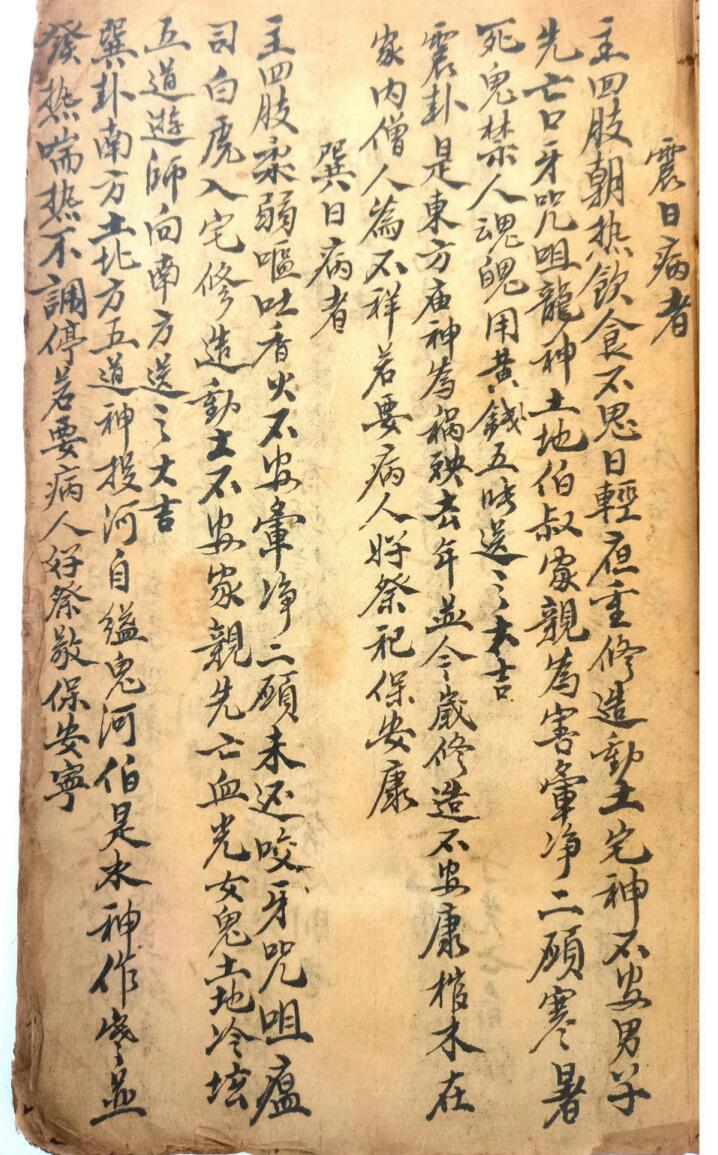 震日病者
主四肢朝热飲食不思日輕夜重修造動土宅神不安男子
先亡口牙咒咀龍神土地伯叔家親為害葷净二願寒暑
死鬼禁人魂魄用黄錢五時送之大吉
震卦是東方庙神為禍殃去年並今歲修造不安康棺木在
家内僧人為不祥若要病人好祭祀保安康
巽日病者
主四肢柔弱嘔吐香火不安葷净二願未还咬牙咒咀瘟
司白虎入宅修造動土不安家親先亡血光女鬼土地冷坛
五道遊師向南方送之大吉
巽卦南方土北方五道神投河自缢鬼河伯是水神作寒並
發热喘热不調停若要病人好祭敬保安寧